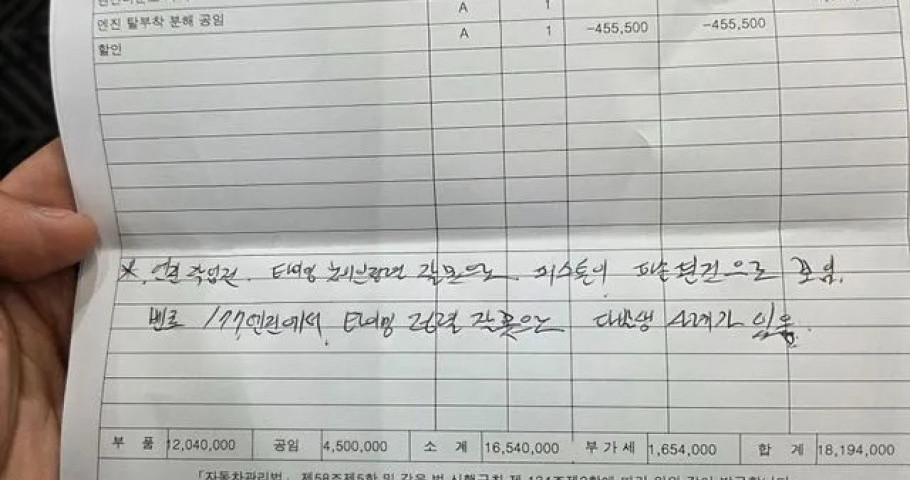 A 1
엔진 탈부착 분해 공임 A 1 -455,500 -455,500
할인
작업전 타이밍 잘못으로 피스톤이 파손된것으로 보임.
벤츠 177엔진에서 타이밍 잘못은 다수 사례가 있음.
부 품 12,040,000 공임 4,500,000 소 계 16,540,000 부가세 1,654,000 합 계 18,194,000
「자동차관리법」 제58조제5항 및 같은 법 시행규칙 제